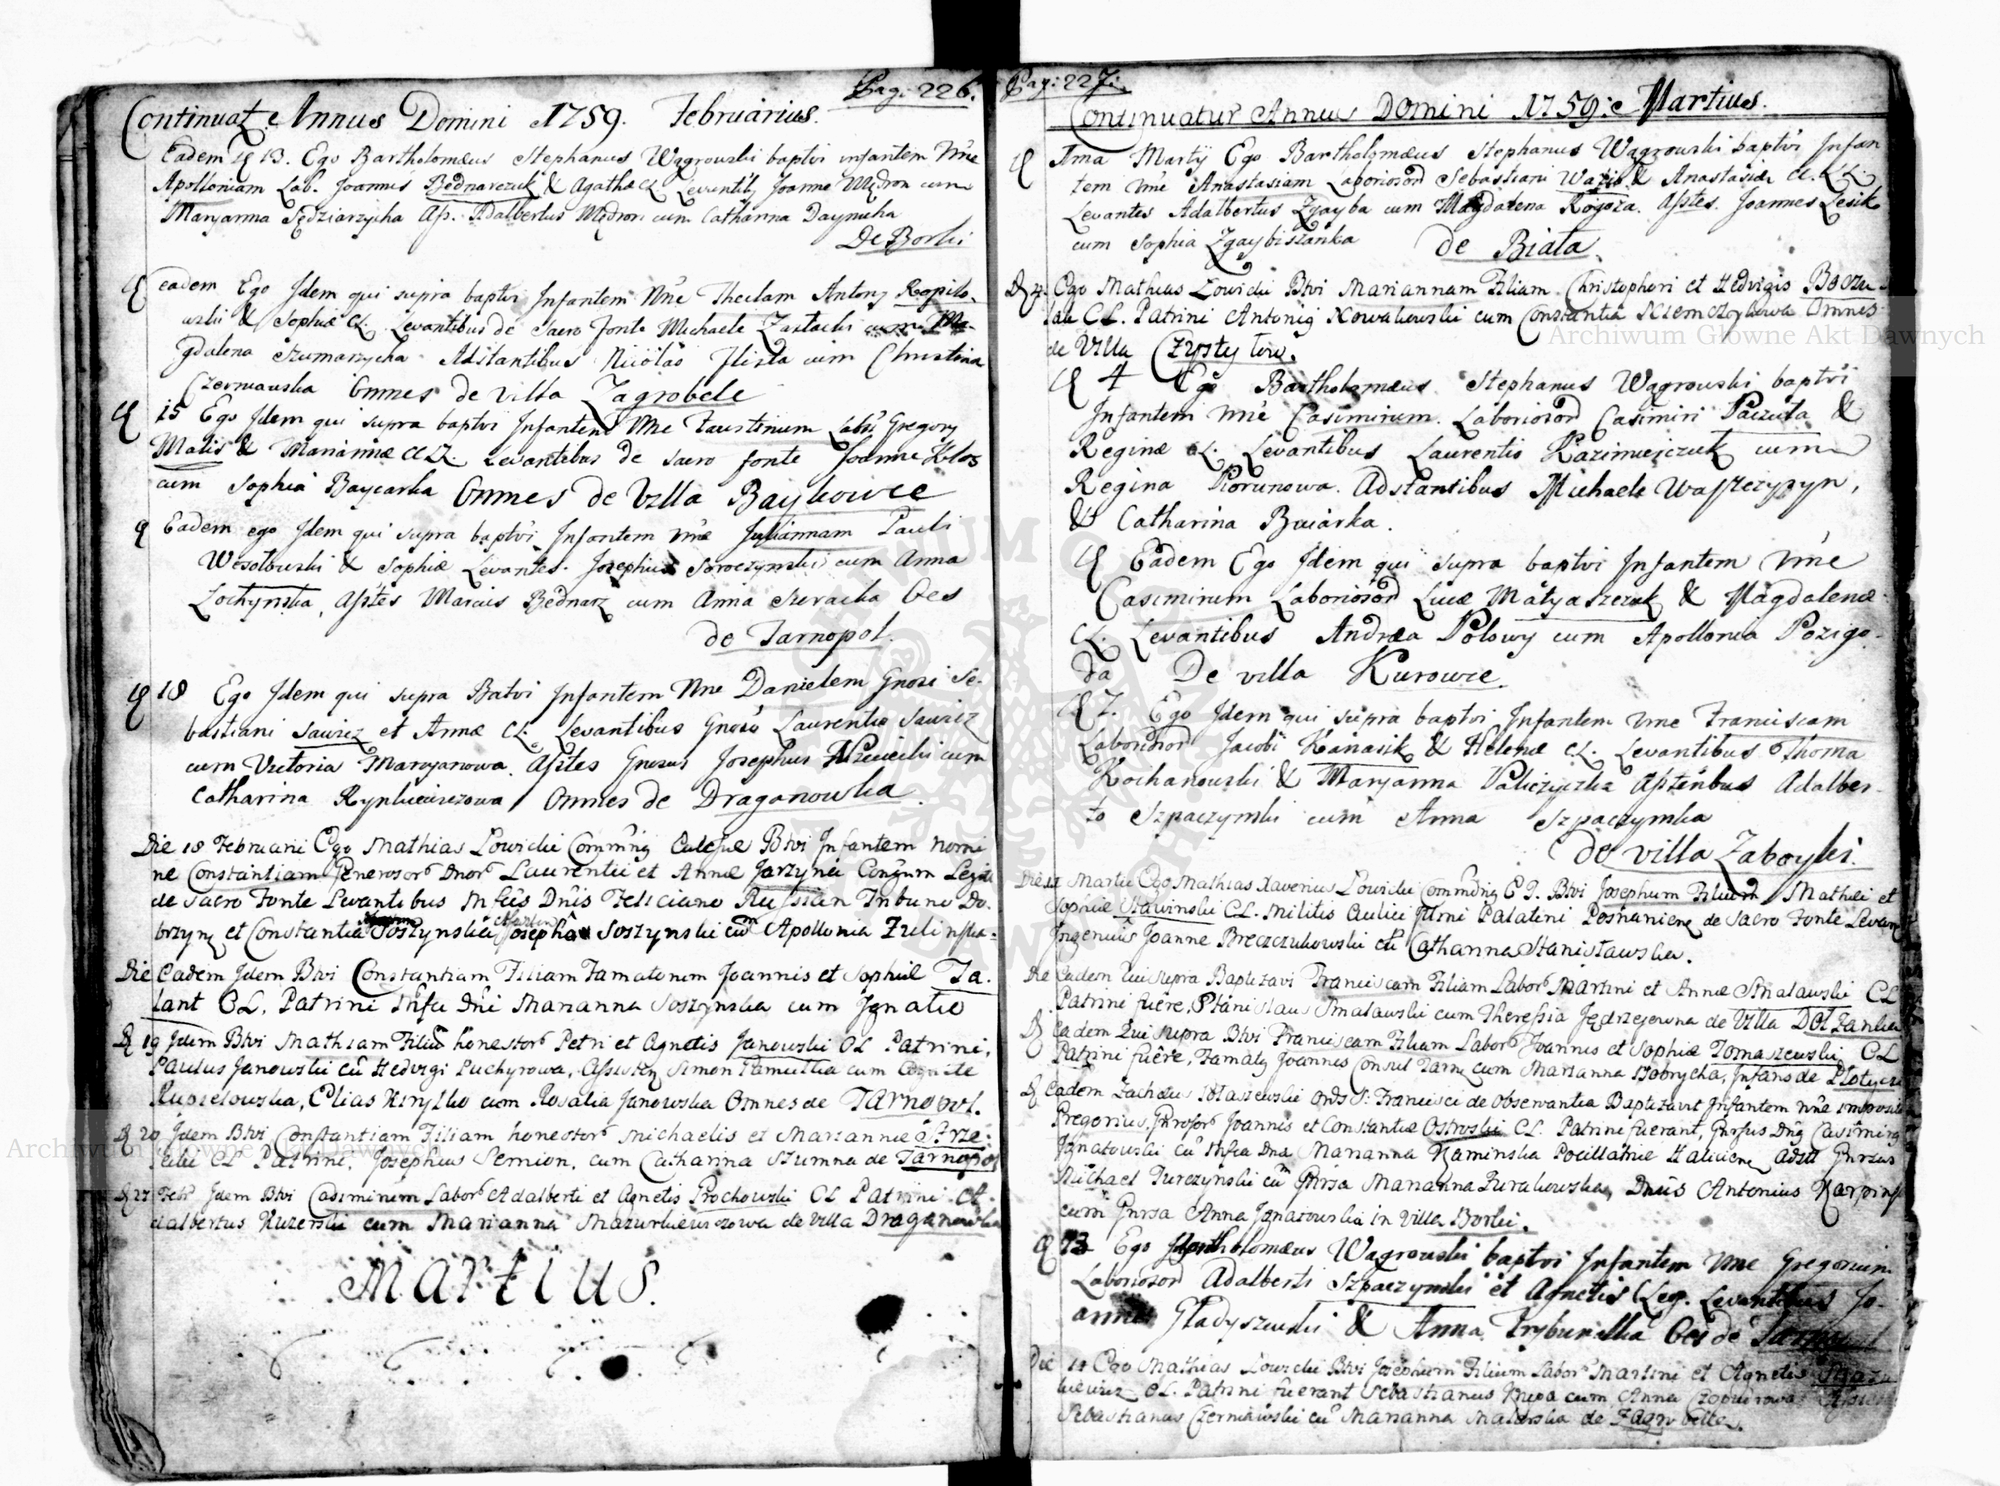 Pag: 226.
Continuat. Annus Domini 1759. Februarius.
Eadem 13. Ego Bartholomæus Stephanus Wągrowski baptvi infantem Nne
Apolloniam Lab. Joannis Bednarczuk & Agathæ CL Levantib Joanne Mędron cum
Maryanna Sędziarzycha Ass. Adalbertus Mędron cum Catharina Daynucha
De Borki
eadem Ego Idem qui supra baptvi Infantem Nne Theclam Antonÿ Kopito-
wski & Sophiæ CL. Levantibus de sacro fonte Michaele Zastacki cum Ma-
gdalena Szumarzycha Adstantibus Nicolao Flista cum Christina
Czerniawska Omnes de villa Zagrobele
15 Ego Idem qui supra baptvi Infantem Nne Faustinum Lab. Gregorÿ
Matis & Mariannæ CL. Levantibus de sacro fonte Joanne Klos
cum Sophia Baycarka Omnes de Villa Baykowce
Eadem ego Idem qui supra baptvi Infantem Nne Juliannam Pauli
Wesołowski & Sophiæ Levantes. Josephus Soroczynski cum Anna
Lochynska, Asstes Marcus Bednarz cum Anna Oes
de Tarnopol.
18 Ego Idem qui supra Batvi Infantem Nne Danielem Gnosi Se-
bastiani Sawicz et Annæ CL. Levantibus Gnoso Laurentio Sawicz
cum Victoria Maryanowa. Asstes Gnosus Josephus cum
Catharina Omnes de Draganowka.
Die 18 Februarii Ego Mathias Lowicki Btvi Infantem nomi
ne Constantiam Generosor Dnor Laurentii et Annæ Jarzyna Conjum Legit
de Sacro Fonte Levantibus Feliciano Russian Tribuno Do-
brzyn et Constantia Soszynska Soszynski cum Apollonia
Die Eadem Idem Btvi Constantiam Filiam Famatorum Joannis et Sophiæ Ta-
lant CL. Patrini Dni Marianna Soszynska cum Ignatio
D 19 Idem Btvi Mathiam Filiu honestor Petri et Agnetis Janowski CL Patrini,
Paulus Janowski cu Hedvigi Puchyrowa, Simon cum Agnete
Elias Kirylko cum Rosalia Janowska Omnes de Tarnopol.
D 20 Idem Btvi Constantiam Filiam honestor Michaelis et Mariannæ Strze-
lecki CL Patrini, Josephus Semion, cum Catharina Szumna de Tarnopol
D 27 Feb Idem Btvi Casimirum Labor Adalberti et Agnetis Prochowski CL Patrini A-
dalbertus Kuzerski cum Marianna Mazurkiewiczowa de Villa Draganowka
Martius.
Pag: 227.
Continuatur Annus Domini 1759: Martius.
1ma Martÿ Ego Bartholomæus Stephanus Wągrowski baptvi Infan
tem Nne Anastasiam Laboriosor Sebastiani & Anastasiæ CLL.
Levantes Adalbertus Zgayba cum Magdalena Rogoza. Asstes. Joannes Lesik
cum Sophia Zgaybiszanka de Biała.
D 4 Ego Mathias Lowicki Btvi Mariannam Filiam Christophori et Hedvigis
CL. Patrini Antonig Kowalkowski cum Constantia Niemczykowa Omnes
de Villa Czystyłow.
4 Ego Bartholomæus Stephanus Wągrowski baptvi
Infantem Nne Casimirum. Laboriosor Casimiri Paczuta &
Reginæ CL. Levantibus Laurentio Kazimiejczuk cum
Regina Korunowa. Adstantibus Michaele Waszczyszyn,
& Catharina Bwiarka.
Eadem Ego Idem qui supra baptvi Infantem Nne
Casimirum Laboriosor Lucæ Matyaszczuk & Magdalenæ
CL. Levantibus Andræa Polowy cum Apollonia Pozigo-
da De villa Kurowce.
7. Ego Idem qui supra baptvi Infantem Nne Franciscam
Laboriosor Jacobi Kanasik & Helenæ CL. Levantibus Thoma
Kochanowski & Maryanna Paliczyczka Asstentibus Adalber-
to Szpaczynski cum Anna Szpaczynska
de villa Zaboyki.
Die 11 Martii Ego Mathias Xaverius Lowicki Btvi Josephum Filium Mathæi et
Sophiæ Stawinski CL. Militis Aulici Illmi Palatini Posnanien de Sacro Fonte Levan
Ingenuus Joanne Breczczukowski cu Catharina Stanisławska.
Die Eadem Qui supra Baptizavi Franciscam Filiam Labor Martini et Annæ Smalawski CL
Patrini fuere, Stanislaus Smalawski cum Theressia Jędrzejewna de Villa Dolzanka
D Eadem Qui supra Btvi Franciscam Filiam Labor Joannis et Sophiæ Tomaszewski CL
Patrini fuere, Famatg Joannes Consul Tarn cum Marianna Bobrycha, Infans de Plotycza
D Eadem Zachæus Staszewski Ords S: Francisci de Observantia Baptizavit Infantem Nne imposito
Gregorius, Gnrosor Joannis et Constantiæ Ostroski CL. Patrini fuerant, Gnrsus Dng Casimirg
Ignatowski cu Dna Marianna Kaminska Pocillatrice Halicien Adstt Gnrsus
Michael Turczynski cu Gnrsa Marianna Zurakowska, Dnus Antonius Karpinski
cum Gnrsa Anna Ignatowska in Villa Borki.
13 Ego Bartholomæus Wągrowski baptvi Infantem Nne Gregorium
Laboriosor Adalberti Szpaczynski et Agnetis CLeg. Levantibus Jo-
anne Gładyszewski & Anna Trybunalka Oes de
Die 14 Ego Mathias Lowicki Btvi Josephum Filium Labor Martini et Agnetis
CL. Patrini fuerant Sebastianus Kupa cum Anna
Sebastianus Czerniawski cu Marianna de Zagrobelle.
Archiwum Główne Akt Dawnych
Archiwum Główne Akt Dawnych